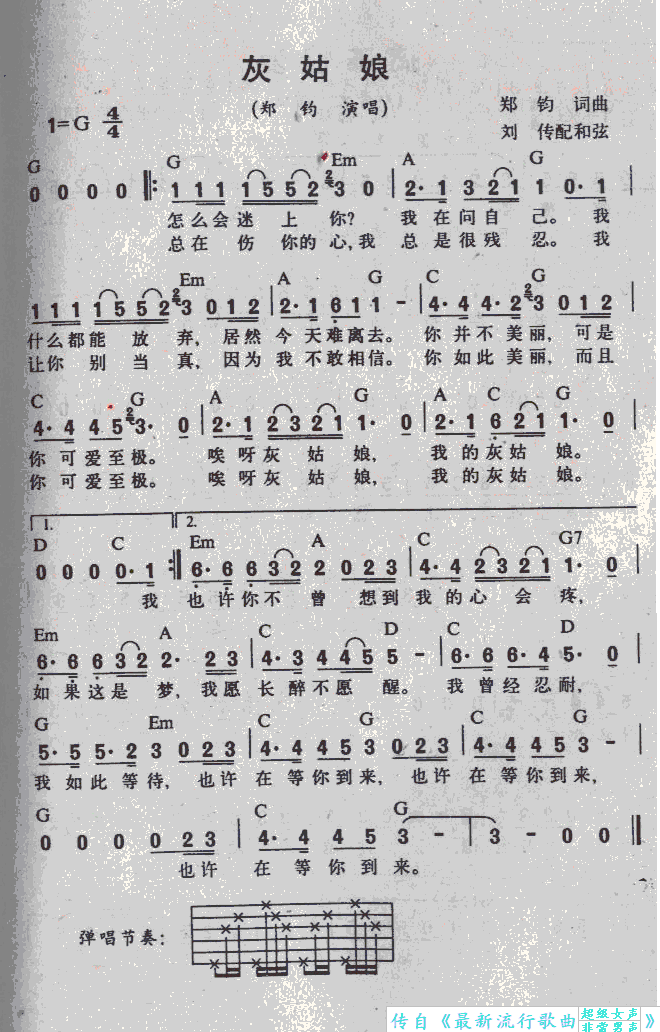 灰姑娘
(郑 钧 演唱)
1=G 4/4
郑 钧 词曲
刘 传配和弦
G G Em A G
0 0 0 0 ‖: 1 1 1 1 5 5 2 2 3 0 | 2· 1 3 2 1 1 0· 1
怎么会迷 上 你? 我 在问自 己。我
总在 伤 你的心,我 总是很残 忍。我
Em A G C G
1 1 1 1 5 5 2 2 3 0 1 2 | 2· 1 6 1 1 – | 4· 4 4· 2 2 3 0 1 2
什么都能 放 弃, 居然 今 天难离去。 你 并不 美丽, 可是
让你 别 当 真, 因为 我 不敢相信。 你 如此 美丽, 而且
C G A G A C G
4· 4 4 5 2 3· 0 | 2· 1 2 3 2 1 1· 0 | 2· 1 6 2 1 1· 0
你 可爱至极。 唉 呀灰 姑 娘, 我 的灰 姑 娘。
你 可爱至极。 唉 呀灰 姑 娘, 我 的灰 姑 娘。
1. 2.
D C Em A C G7
0 0 0 0· 1 :‖ 6· 6 6 3 2 2 0 2 3 | 4· 4 2 3 2 1 1· 0
我 也 许你不 曾 想到 我 的心 会 疼,
Em A C D C D
6· 6 6 3 2 2· 2 3 | 4· 3 4 4 5 5 – | 6· 6 6· 4 5· 0
如 果这是 梦, 我愿 长 醉不愿 醒。 我 曾经 忍耐,
G Em C G C G
5· 5 5· 2 3 0 2 3 | 4· 4 4 5 3 0 2 3 | 4· 4 4 5 3 –
我 如此 等待, 也许 在 等你到来, 也许 在 等你到来,
G C G
0 0 0 0 2 3 | 4· 4 4 5 3 – | 3 – 0 0 ‖
也许 在 等你到 来。
弹唱节奏:
传自《最新流行歌曲 超级女声 非常男声》